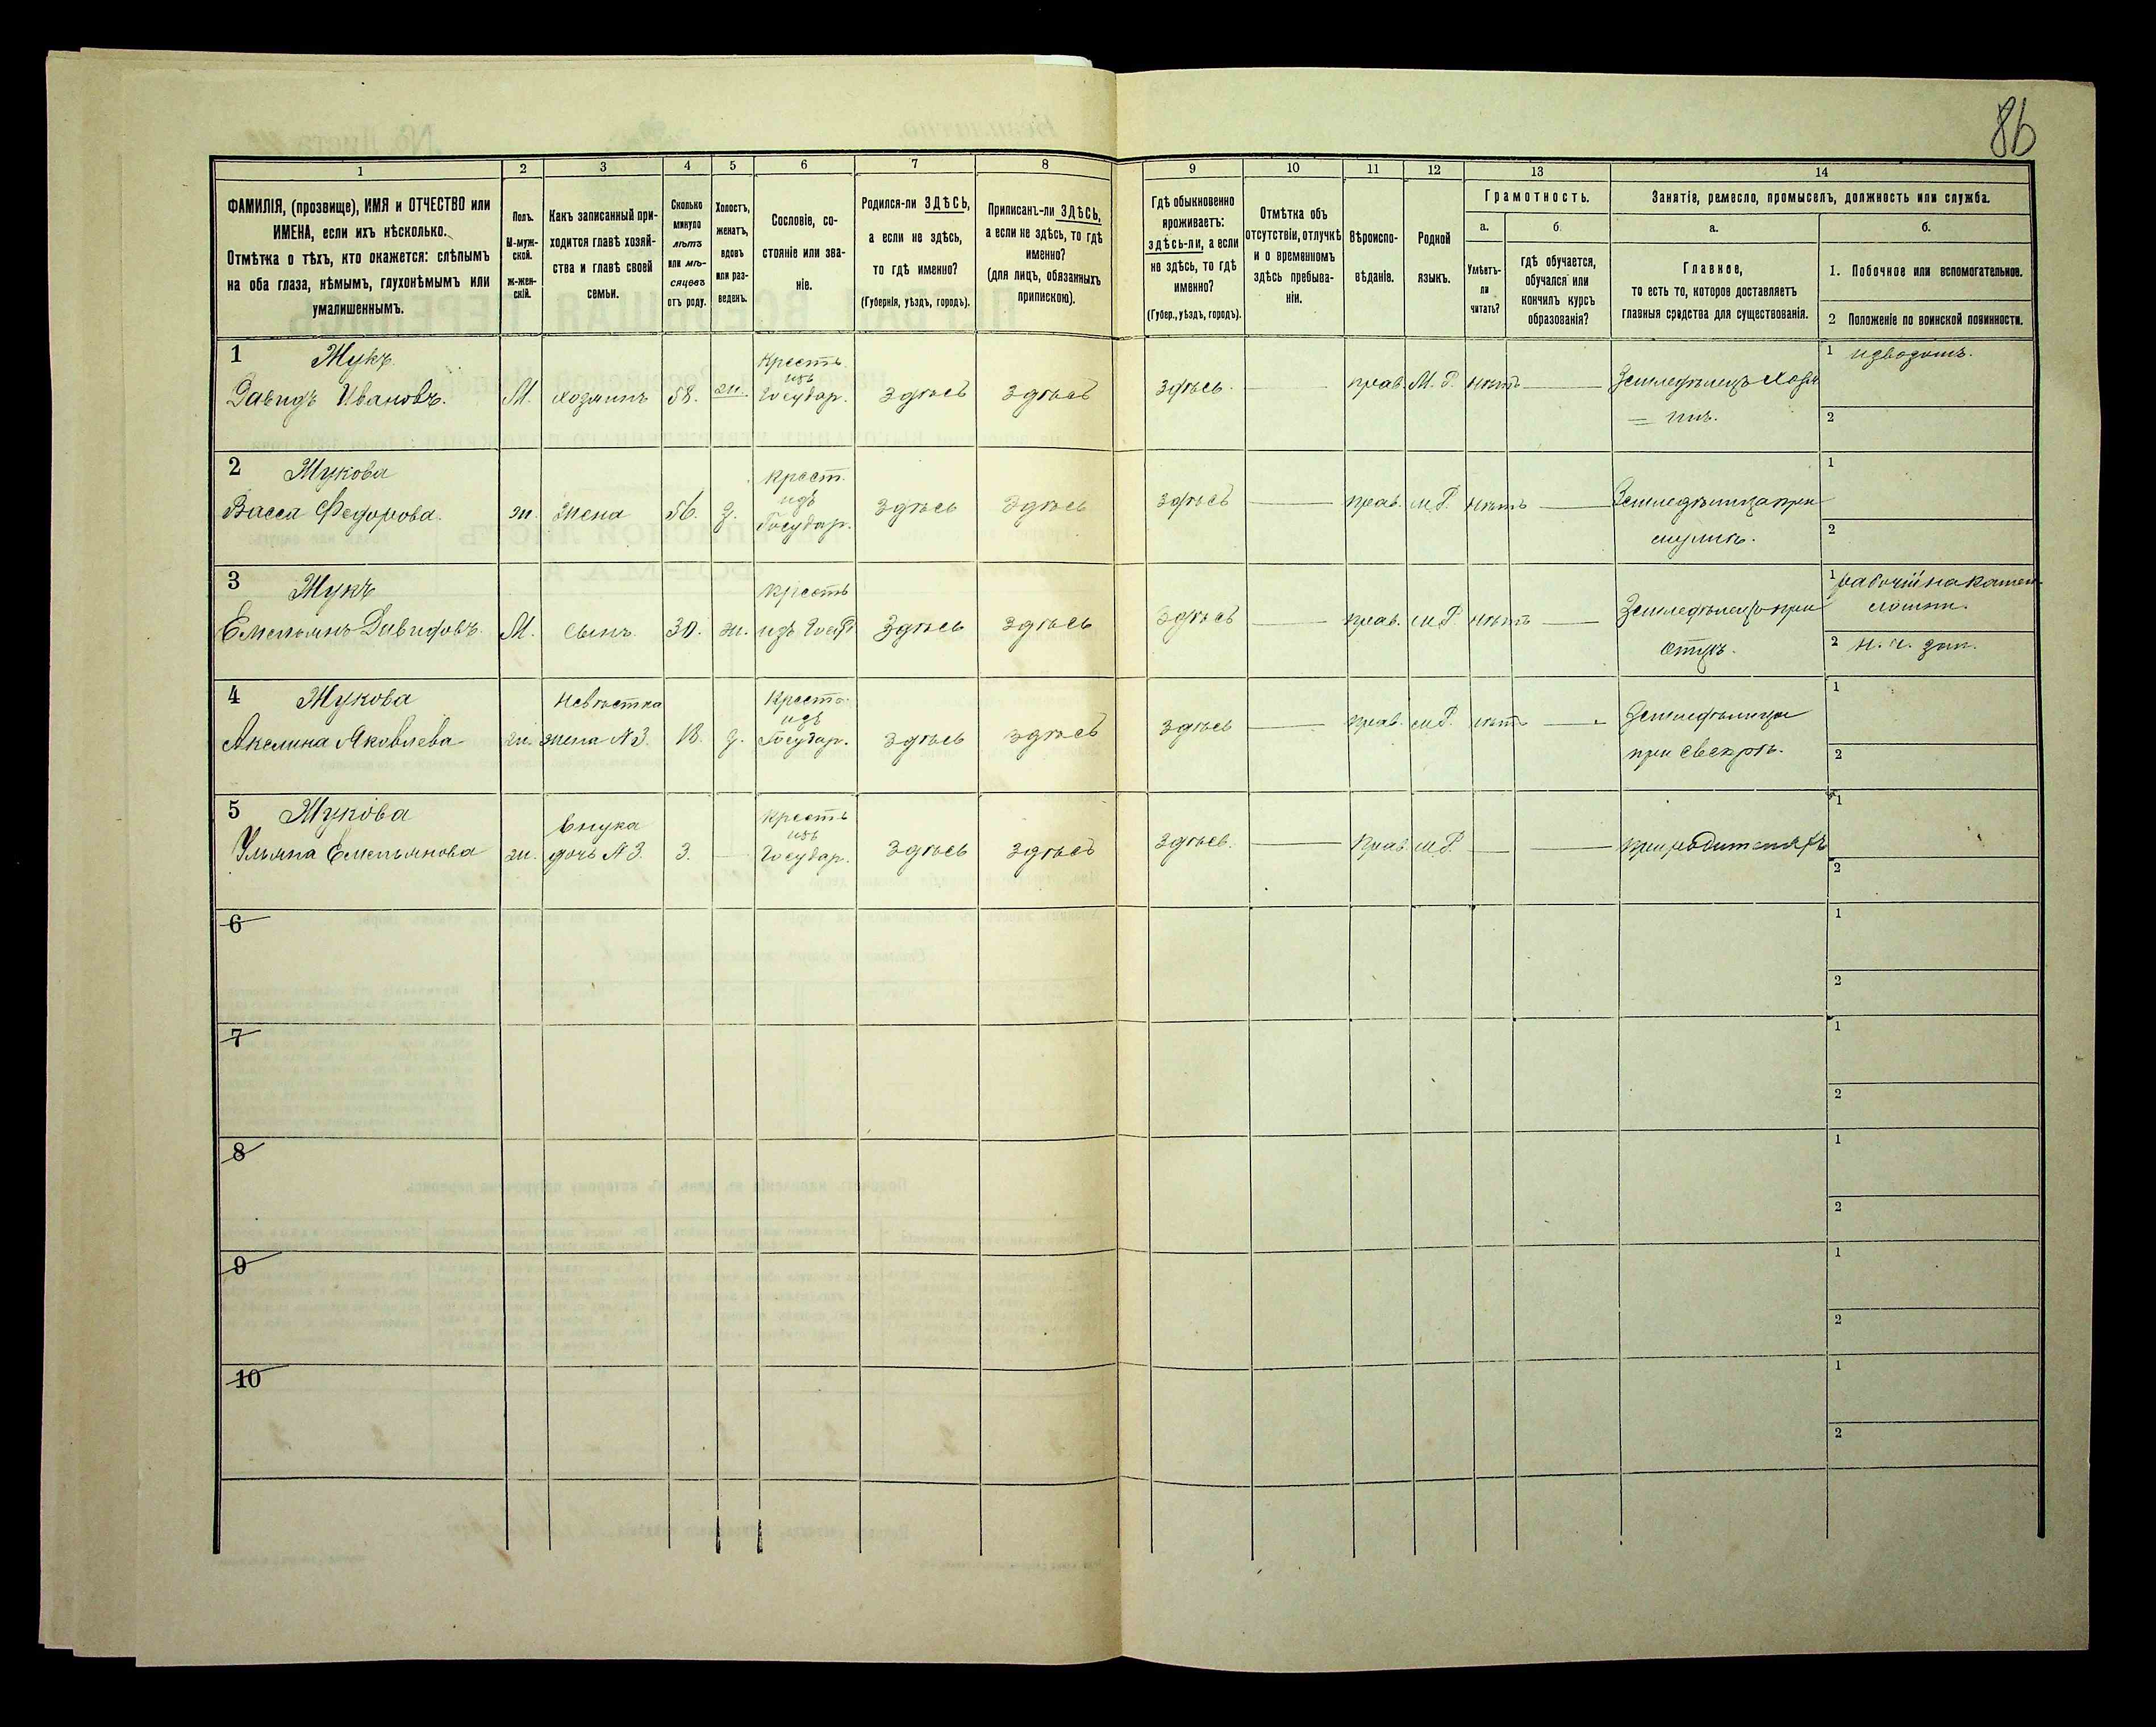 86
1
2
3
4
5
6
7
8
9
10
11
12
13
14
ФАМИЛІЯ, (прозвище), ИМЯ и ОТЧЕСТВО или
ИМЕНА, если ихъ нѣсколько.
Отмѣтка о тѣхъ, кто окажется: слѣпымъ
на оба глаза, нѣмымъ, глухонѣмымъ или
умалишеннымъ.
Полъ.
М-муж-
ской.
Ж-жен-
скій.
Какъ записанный при-
ходится главѣ хозяй-
ства и главѣ своей
семьи.
Сколько
минуло
лѣтъ
или мѣ-
сяцевъ
отъ роду.
Холостъ,
женатъ,
вдовъ
или раз-
веденъ.
Сословіе, со-
стояніе или зва-
ніе.
Родился-ли ЗДѢСЬ,
а если не здѣсь,
то гдѣ именно?
(Губернія, уѣздъ, городъ).
Приписанъ-ли ЗДѢСЬ,
а если не здѣсь, то гдѣ
именно?
(для лицъ, обязанныхъ
припискою).
Гдѣ обыкновенно
проживаетъ:
здѣсь-ли, а если
не здѣсь, то гдѣ
именно?
(Губер., уѣздъ, городъ).
Отмѣтка объ
отсутствіи, отлучкѣ
и о временномъ
здѣсь пребыва-
ніи.
Вѣроиспо-
вѣданіе.
Родной
языкъ.
Грамотность.
а.
б.
Умѣетъ-
ли
читать?
гдѣ обучается,
обучался или
кончилъ курсъ
образованія?
Занятіе, ремесло, промыселъ, должность или служба.
а.
б.
Главное,
то есть то, которое доставляетъ
главныя средства для существованія.
1. Побочное или вспомогательное.
2 Положеніе по воинской повинности.
1 Жукъ
Давидъ Ивановъ. М. хозяинъ 58. ж. Крестъ. изъ Государ. здѣсь здѣсь здѣсь. прав. М. Р. нѣтъ Земледѣлецъ хозя
= инъ.
1 изводомъ.
2
2 Жукова
Васса Федорова. ж. жена 56. з. Крест. изъ Государ. здѣсь здѣсь здѣсь прав. м.Р. нѣтъ Земледѣлица при
мужѣ.
1
2
3 Жукъ
Емельянъ Давидовъ. М. сынъ. 30. ж. Крестъ изъ Госуд здѣсь здѣсь здѣсь прав. м.Р. нѣтъ Земледѣлецъ при
отцѣ.
1 рабочій на камен-
ломни.
2 н. ч. зап.
4 Жукова
Акелина Яковлева ж. невѣстка жена №3. з. Кресть изъ Государ. здѣсь здѣсь здѣсь прав. м.Р. нѣтъ Земледѣлица
при свекрѣ.
1
2
5 Жукова
Ульяна Емельянова ж. внука дочь №3. 3. Кресть изъ Государ. здѣсь здѣсь здѣсь. Прав. м.Р. при родителяхъ
1
2
6
1
2
7
1
2
8
1
2
9
1
2
10
1
2